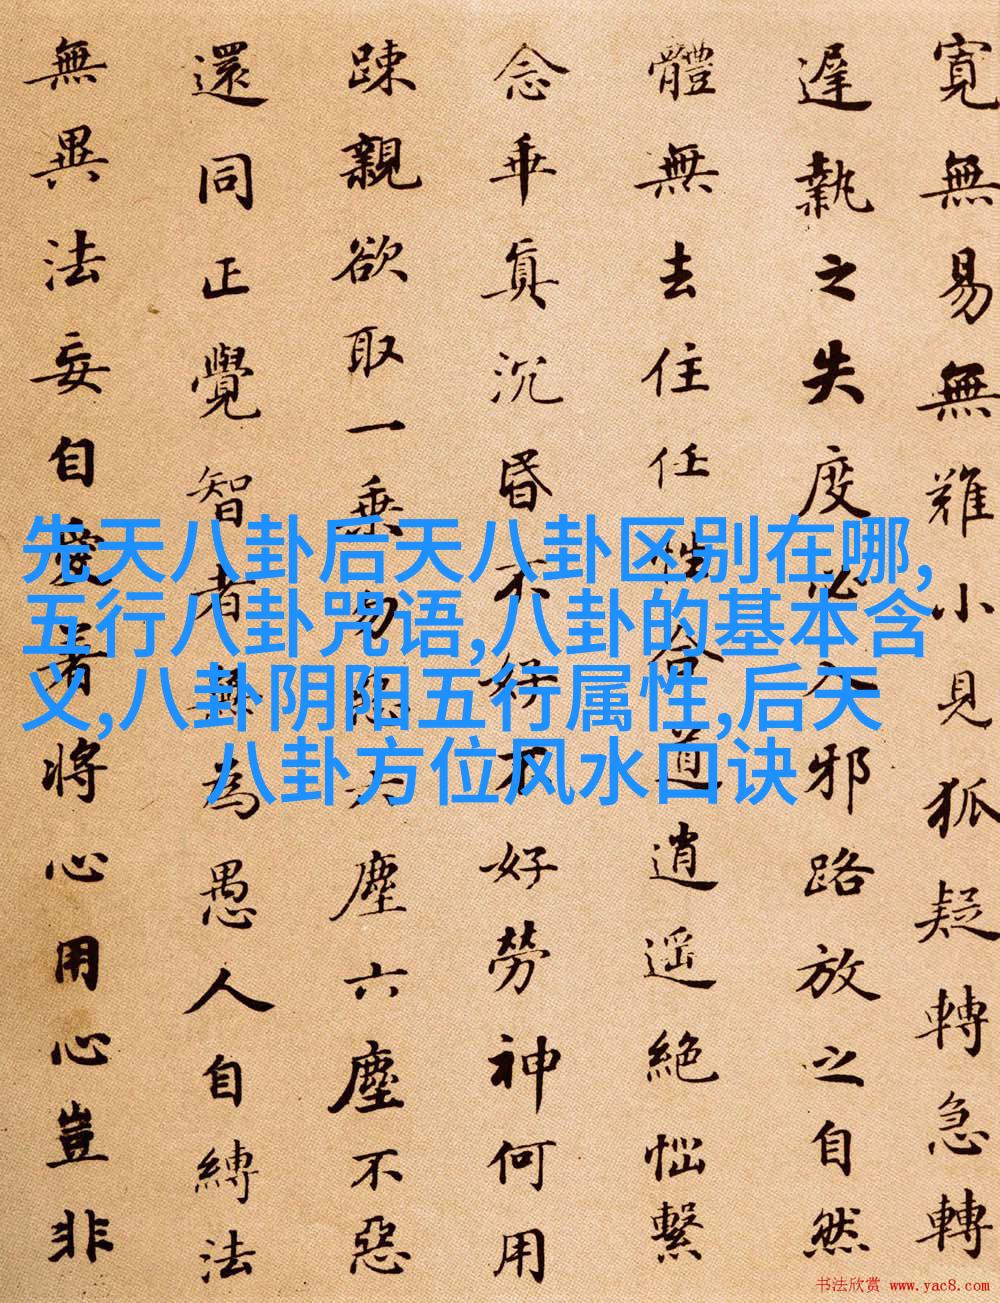 寬無易無難小見狐疑轉急轉
遲執之失度必入邪路放之自然
體無去住任性合道逍遥絕惱繫
念乖真沉昏不好不好勞神何用
踈親欲取一乘勿惡六塵六塵不惡
還同正覺智者無為愚人自縛法
無異法妄自愛著將心用心豈非
先天八卦后天八卦区别在哪,
五行八卦咒语,八卦的基本含
义,八卦阴阳五行属性,后天
八卦方位风水口诀
书法欣赏 www.yac8.com